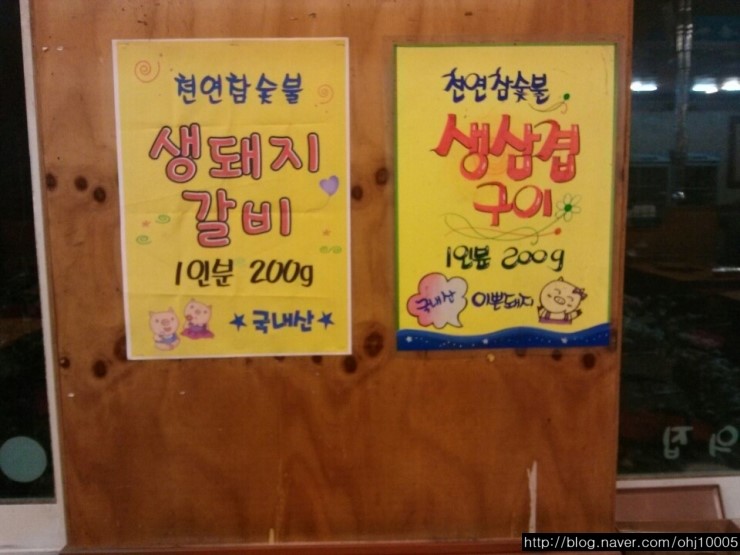 천연참숯불
생돼지
갈비
1인분 200g
★국내산★
천연참숯불
생삼겹
구이
1인분 200g
국내산 이쁜돼지
http://blog.naver.com/ohj10005